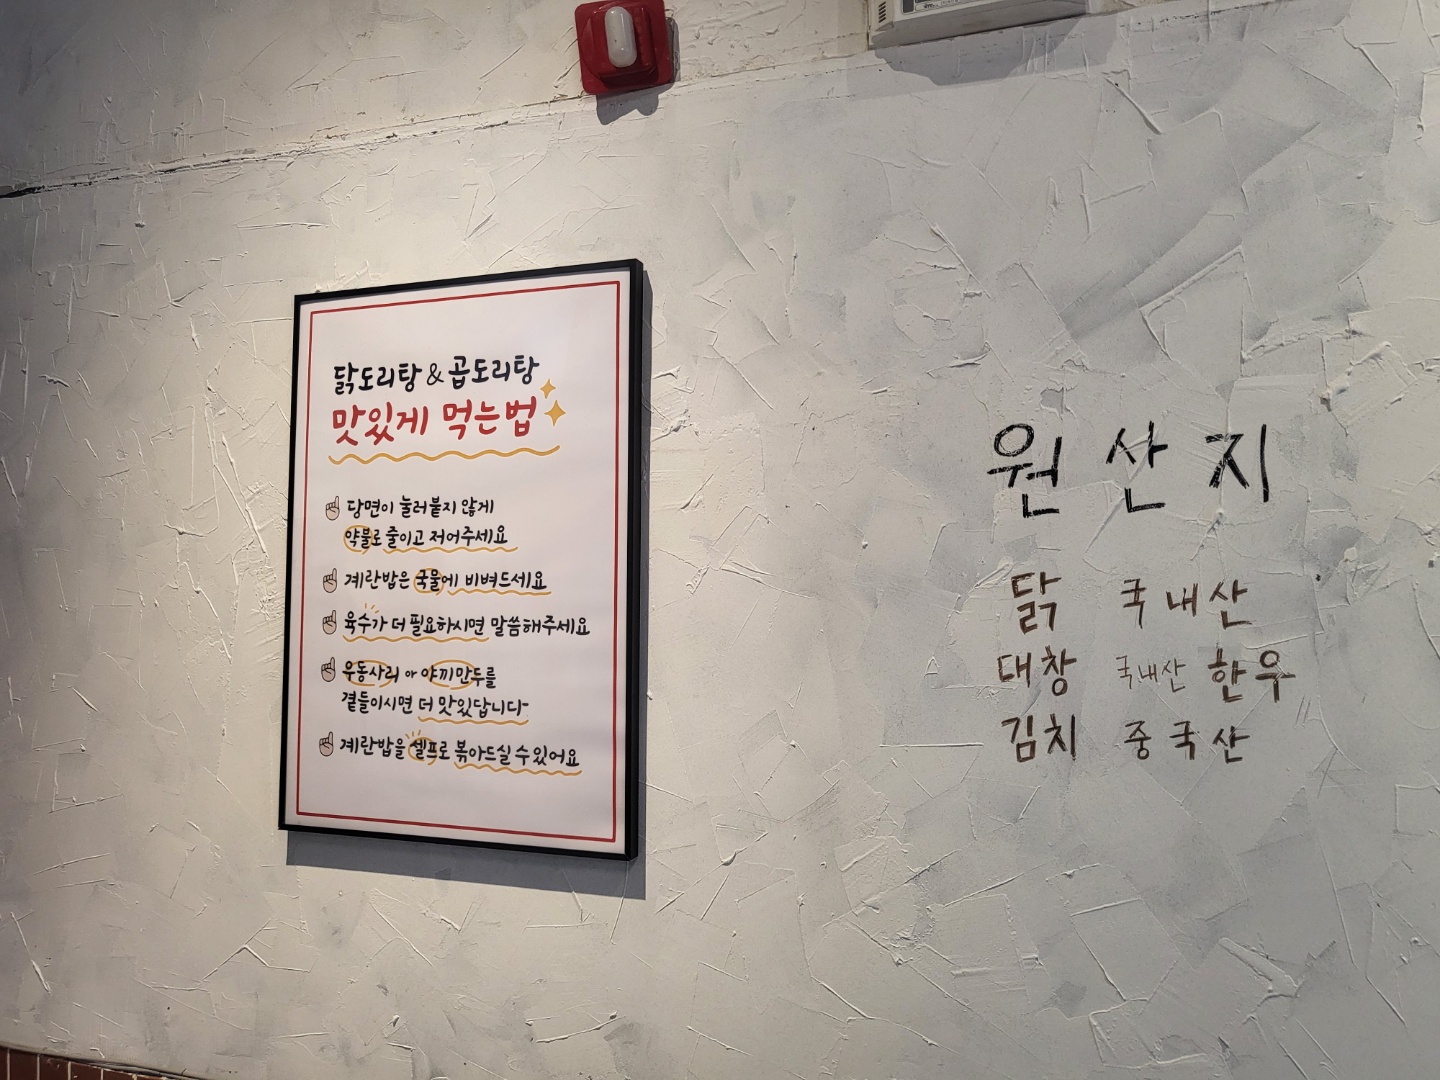 닭도리탕 & 곱도리탕
맛있게 먹는법
당면이 눌러붙지 않게
약불로 줄이고 저어주세요
계란밥은 국물에 비벼드세요
육수가 더 필요하시면 말씀해주세요
우동사리 or 야끼만두를
곁들이시면 더 맛있답니다~
계란밥을 셀프로 볶아드실 수 있어요
원산지
닭 국내산
대창 국내산 한우
김치 중국산